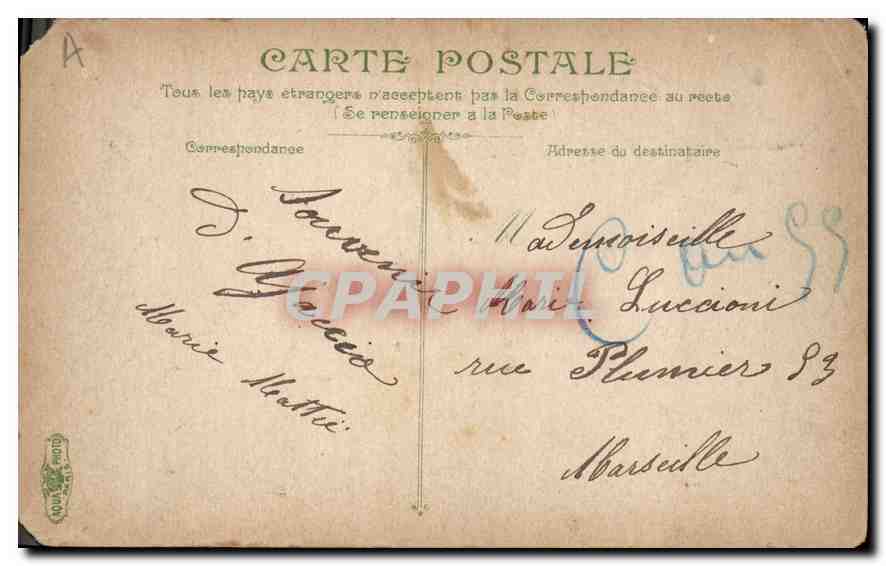 A
CARTE POSTALE
Tous les pays étrangers n'acceptent pas la Correspondance au recto
(Se renseigner a la Poste)
Correspondance
Adresse du destinataire
Souvenir
D'Ajaccio
Marie Mattei
Mademoiselle
Marie Luccioni
rue Plumier 93
Marseille
CPAPHIL
AQUA PHOTO
PARIS